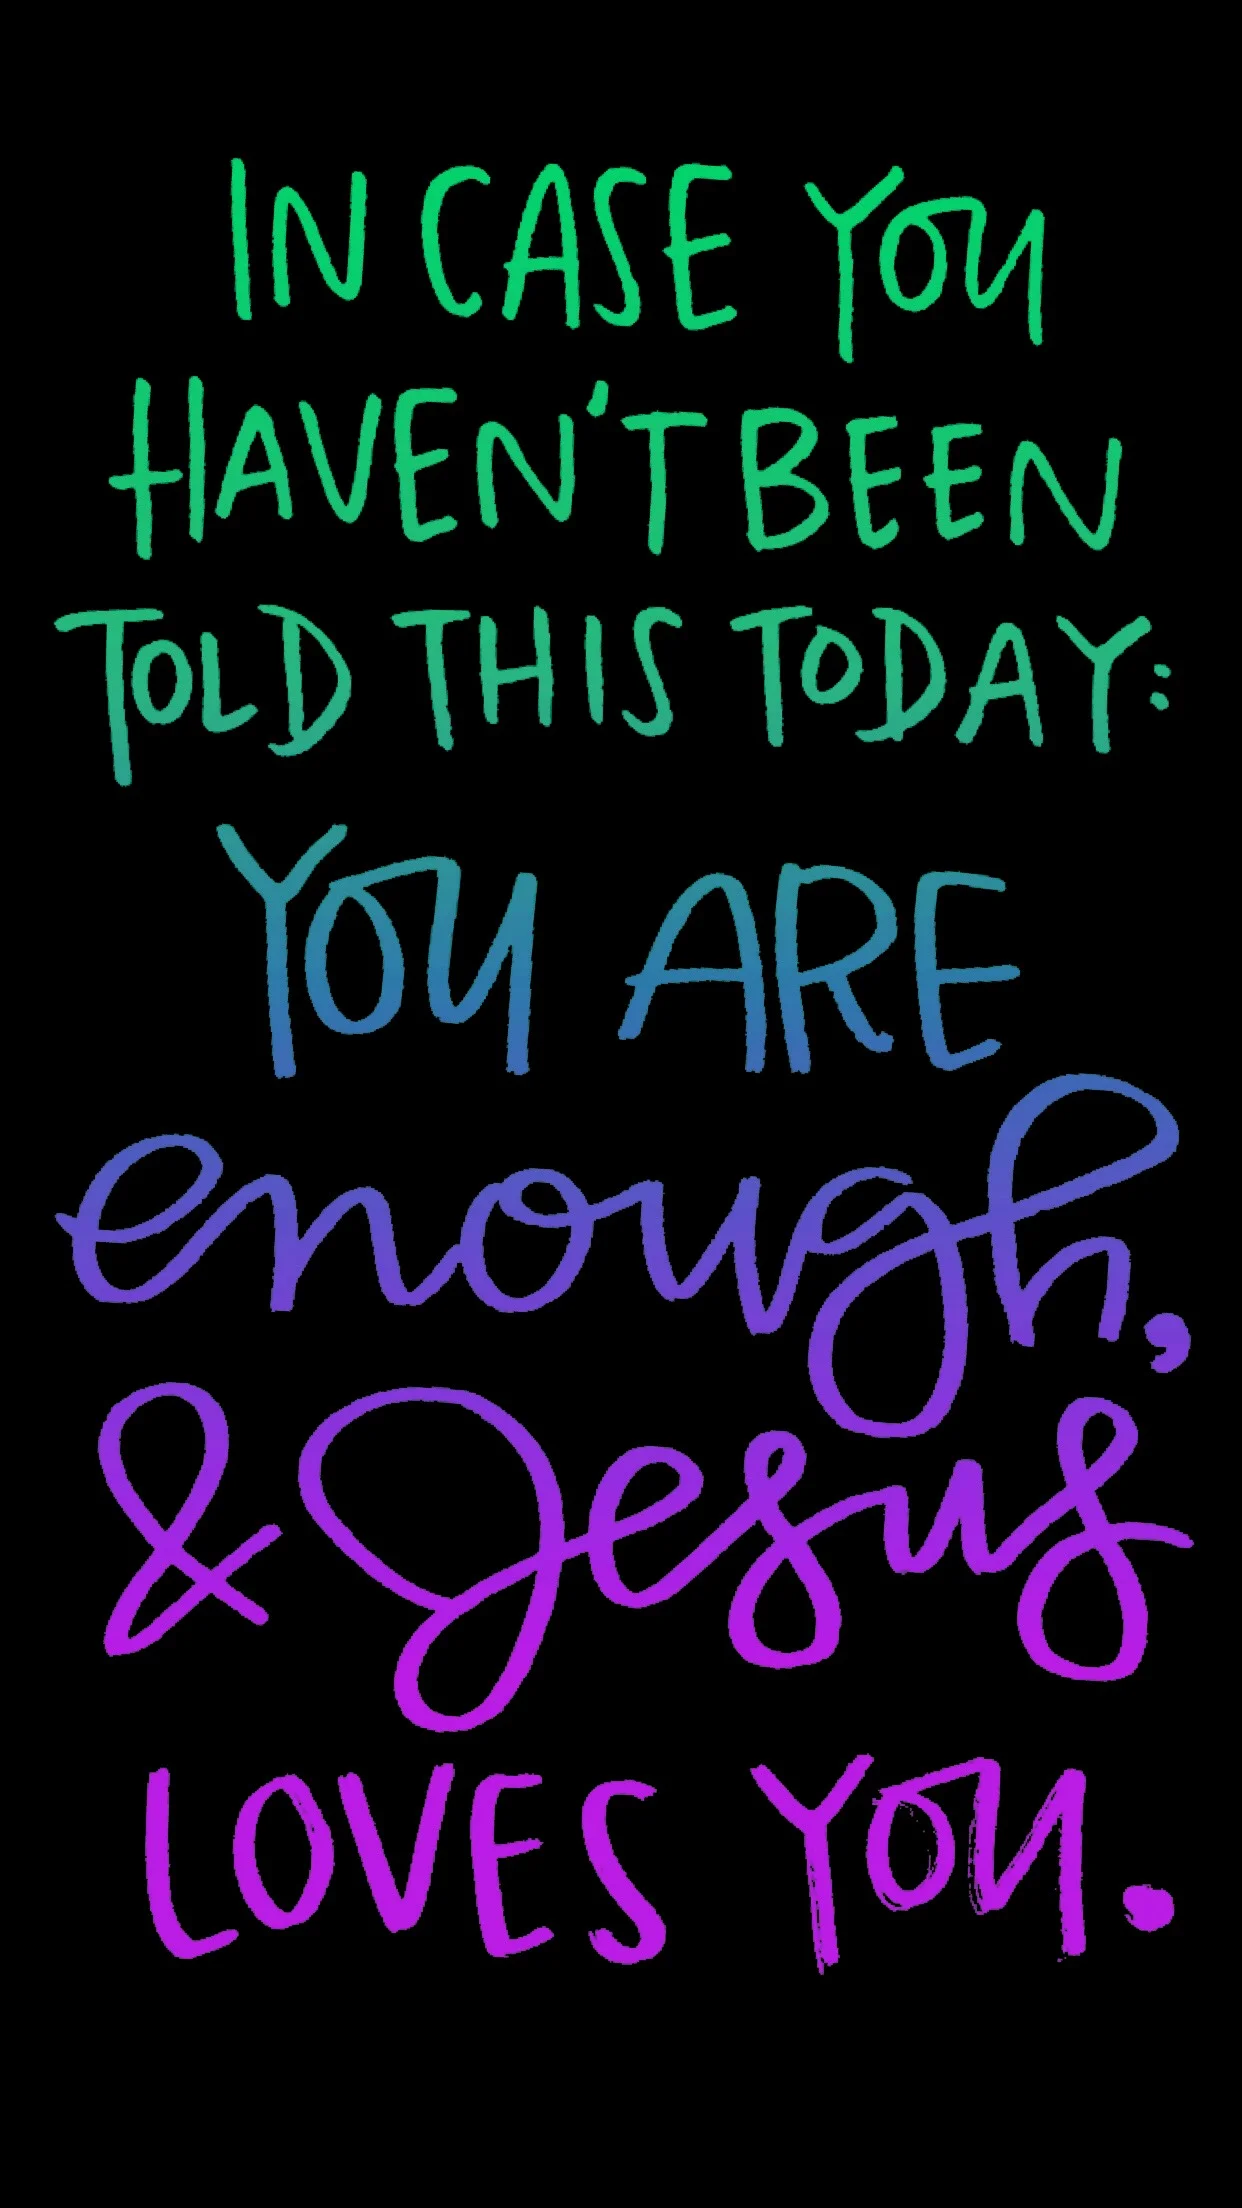 IN CASE YOU
HAVEN'T BEEN
TOLD THIS TODAY:
YOU ARE
enough,
& Jesus
LOVES YOU.